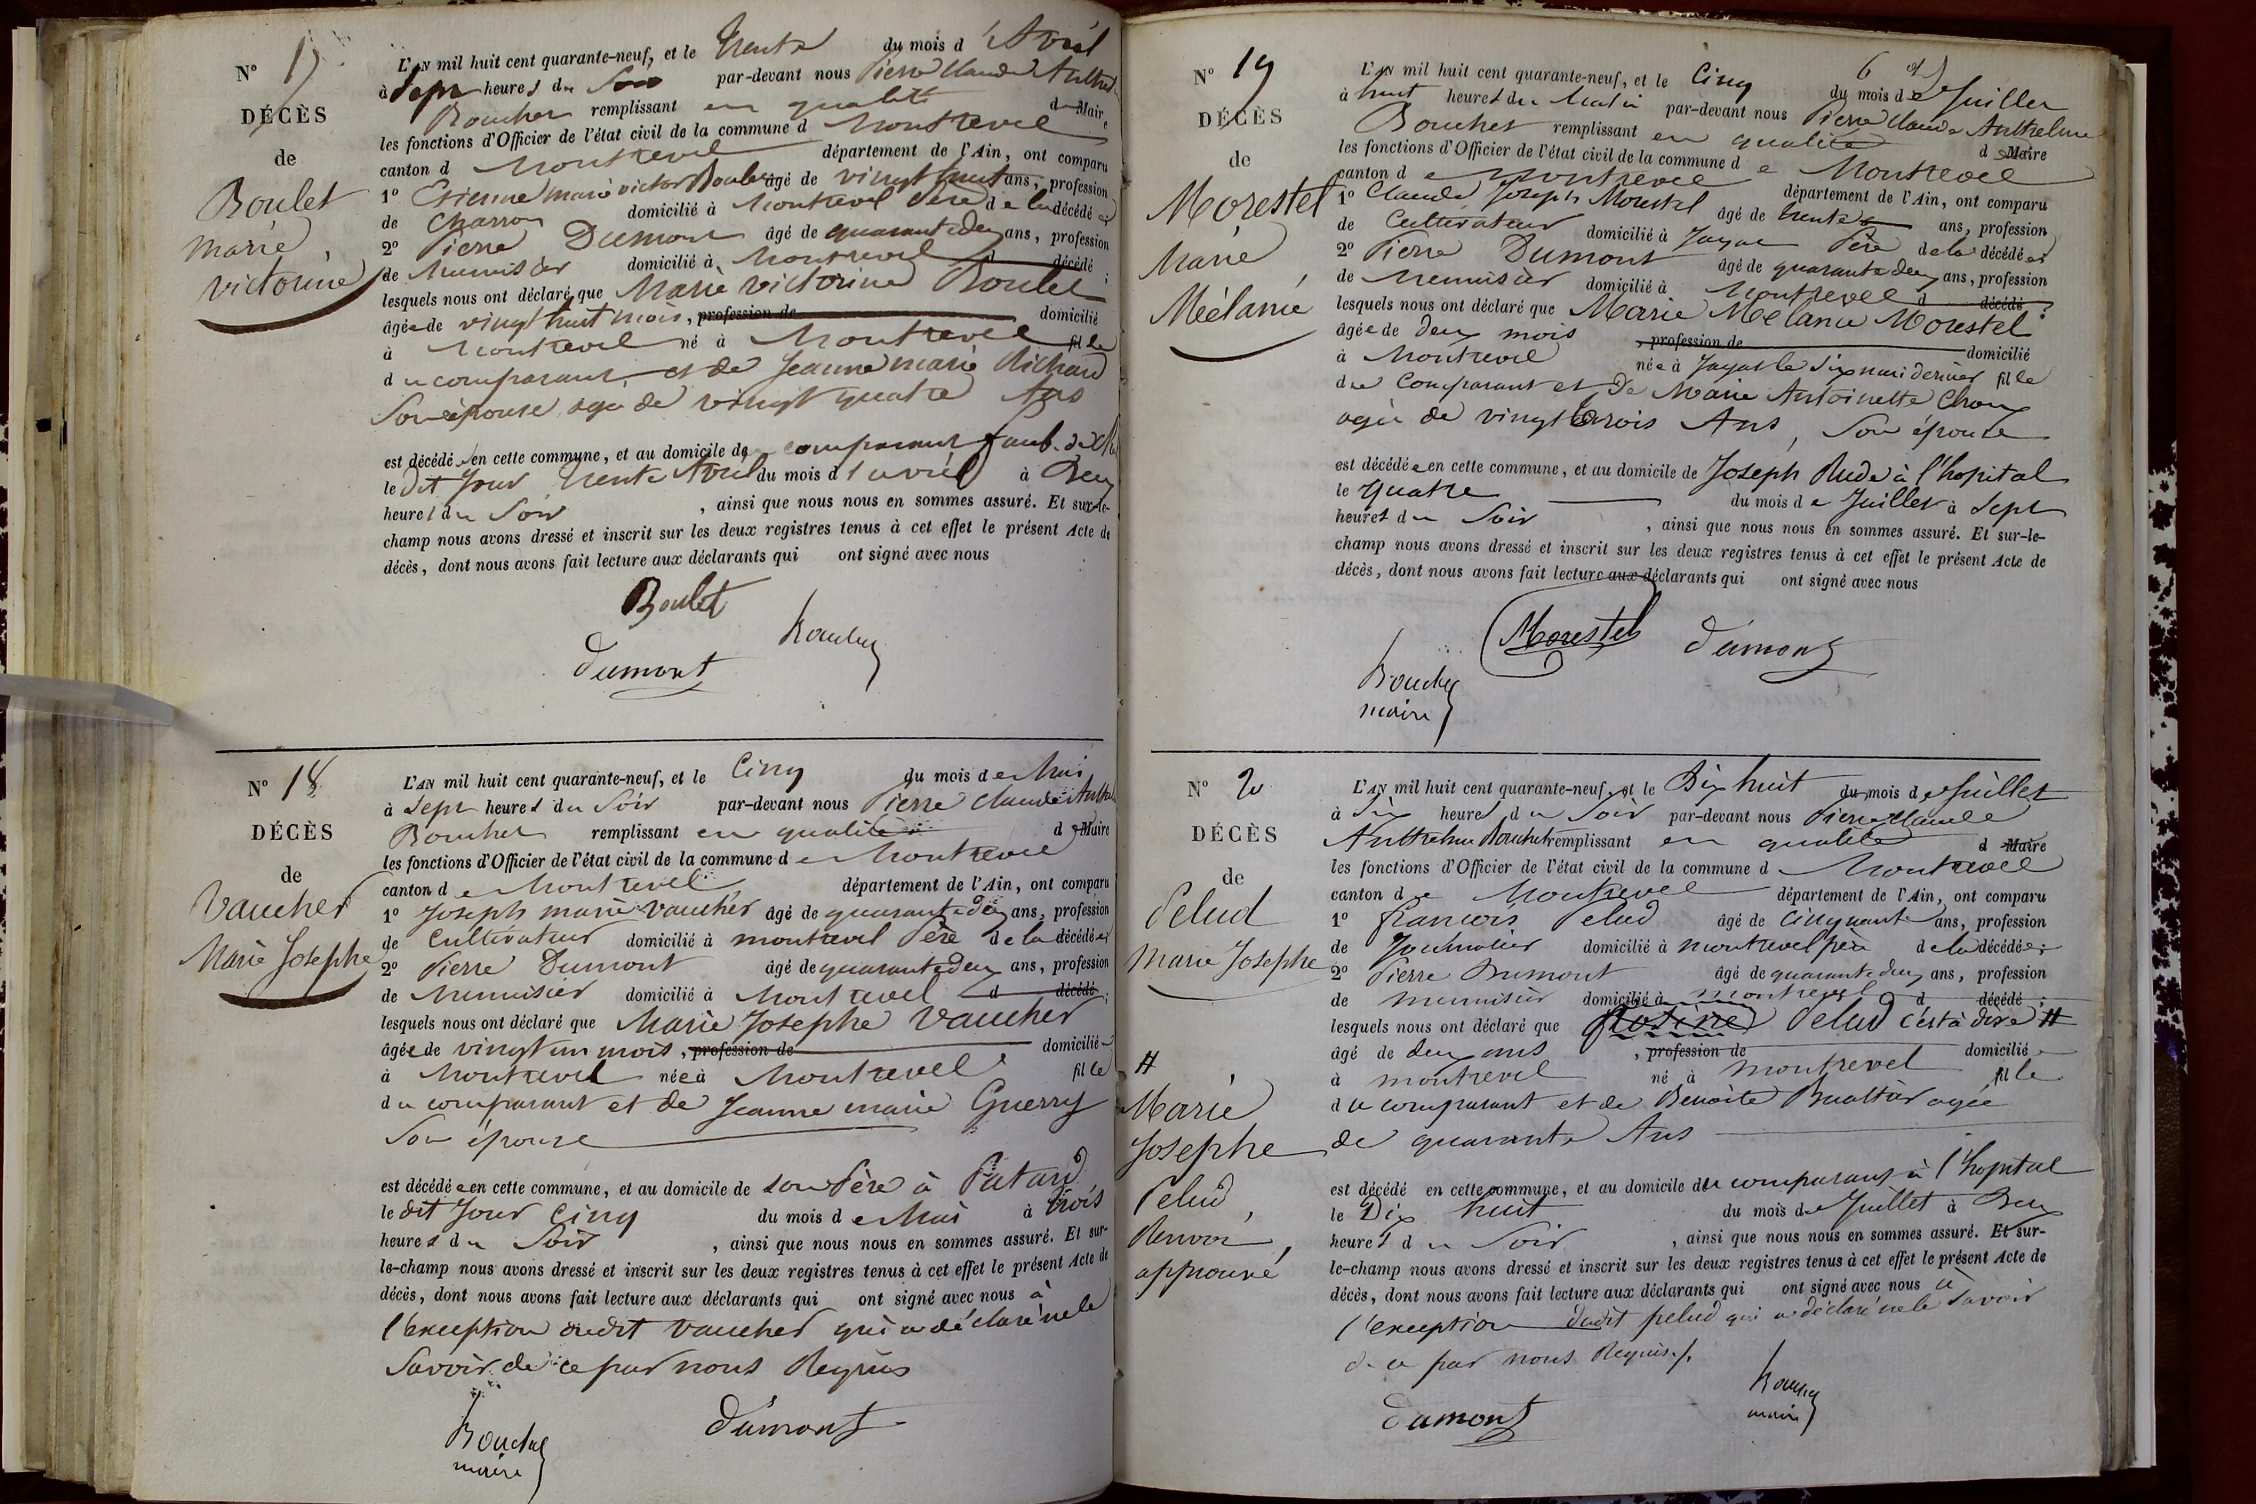 N° 17
DÉCÈS
de
Boulet
marie
victorine
L'AN mil huit cent quarante-neuf, et le trente du mois d'Avril
à Sept heures du Soir par-devant nous Pierre Claude Anthel
Bouchet remplissant en qualité de Maire
les fonctions d'Officier de l'état civil de la commune d Montrevel
canton d Montrevel département de l'Ain, ont comparu
1° Etienne marie victor Boulet âgé de vingt huit ans, profession
de Charron domicilié à Montrevel Père de la décédée;
2° Pierre Dumont âgé de quarante deux ans, profession
de Menuisier domicilié à Montrevel d décédé;
lesquels nous ont déclaré que Marie victorine Boulet
âgée de vingt huit mois, profession de domicilié
à Montrevel né à Montrevel fille
du comparant, et de Jeanne marie Richard
Son épouse agée de vingt quatre Ans
est décédée en cette commune, et au domicile du comparant faub.
le dit Jour trente Avril du mois d'avril à Deux
heures du Soir, ainsi que nous nous en sommes assuré. Et sur-le-
champ nous avons dressé et inscrit sur les deux registres tenus à cet effet le présent Acte de
décès, dont nous avons fait lecture aux déclarants qui ont signé avec nous
Boulet
Dumont Bouchet
N° 18
DÉCÈS
de
Vaucher
Marie Josephe
L'AN mil huit cent quarante-neuf, et le Cinq du mois de Mai
à Sept heures du Soir par-devant nous Pierre Claude Anthel
Bouchet remplissant en qualité de Maire
les fonctions d'Officier de l'état civil de la commune de Montrevel
canton de Montrevel département de l'Ain, ont comparu
1° Joseph marie Vaucher âgé de quarante ans, profession
de Cultivateur domicilié à montrevel Père de la décédée;
2° Pierre Dumont âgé de quarante deux ans, profession
de Menuisier domicilié à Montrevel d décédé;
lesquels nous ont déclaré que Marie Josephe Vaucher
âgée de vingt un mois, profession de domicilié
à Montrevel née à Montrevel fille
du comparant et de Jeanne marie Guerry
Son épouse
est décédée en cette commune, et au domicile de son Père à Patard
le dit Jour Cinq du mois de Mai à trois
heures du Soir, ainsi que nous nous en sommes assuré. Et sur-
le-champ nous avons dressé et inscrit sur les deux registres tenus à cet effet le présent Acte de
décès, dont nous avons fait lecture aux déclarants qui ont signé avec nous à
l'exception dudit Vaucher qui a déclaré ne le
Savoir de ce par nous Requis
Bouchet Dumont
maire
N° 19
DÉCÈS
de
Morestel
Marie
Mélanie
L'AN mil huit cent quarante-neuf, et le Cinq du mois de Juillet
à huit heures du Matin par-devant nous Pierre Claude Anthelme
Bouchet remplissant en qualité de Maire
les fonctions d'Officier de l'état civil de la commune de Montrevel
canton de Montrevel département de l'Ain, ont comparu
1° Claude Joseph Morestel âgé de trente ans, profession
de Cultivateur domicilié à Jayat Père de la décédée;
2° Pierre Dumont âgé de quarante deux ans, profession
de Menuisier domicilié à Montrevel d décédé;
lesquels nous ont déclaré que Marie Mélanie Morestel
âgée de deux mois, profession de domicilié
à Montrevel née à Jayat le Six mai dernier fille
du Comparant et De Marie Antoinette Choux
agée de vingt trois Ans, Son épouse
est décédée en cette commune, et au domicile de Joseph Rude à l'hopital
le quatre du mois de Juillet à Sept
heures du Soir, ainsi que nous nous en sommes assuré. Et sur-le-
champ nous avons dressé et inscrit sur les deux registres tenus à cet effet le présent Acte de
décès, dont nous avons fait lecture aux déclarants qui ont signé avec nous
Morestel Dumont
Bouchet
maire
N° 20
DÉCÈS
de
Pelud
Marie Josephe
L'AN mil huit cent quarante-neuf, et le Dix huit du mois de Juillet
à Six heures du Soir par-devant nous Pierre Claude
Anthelme Bouchet remplissant en qualité de Maire
les fonctions d'Officier de l'état civil de la commune d Montrevel
canton de Montrevel département de l'Ain, ont comparu
1° francois Pelud âgé de Cinquante ans, profession
de Journalier domicilié à montrevel père de la décédée;
2° Pierre Dumont âgé de quarante deux ans, profession
de menuisier domicilié à montrevel d décédé;
lesquels nous ont déclaré que Rosine Pelud c'est à dire #
âgé de deux ans, profession de domicilié
à montrevel né à montrevel fille
du comparant et de Benoite Buattier agée
de quarante Ans
#
Marie
Josephe
Pelud,
Renvoi,
approuvé
est décédé en cette commune, et au domicile du comparant à l'hopital
le Dix huit du mois de Juillet à Deux
heures du Soir, ainsi que nous nous en sommes assuré. Et sur-
le-champ nous avons dressé et inscrit sur les deux registres tenus à cet effet le présent Acte de
décès, dont nous avons fait lecture aux déclarants qui ont signé avec nous à
l'exception dudit pelud qui a déclaré ne le Savoir
de ce par nous Requis
Dumont Bouchet
maire